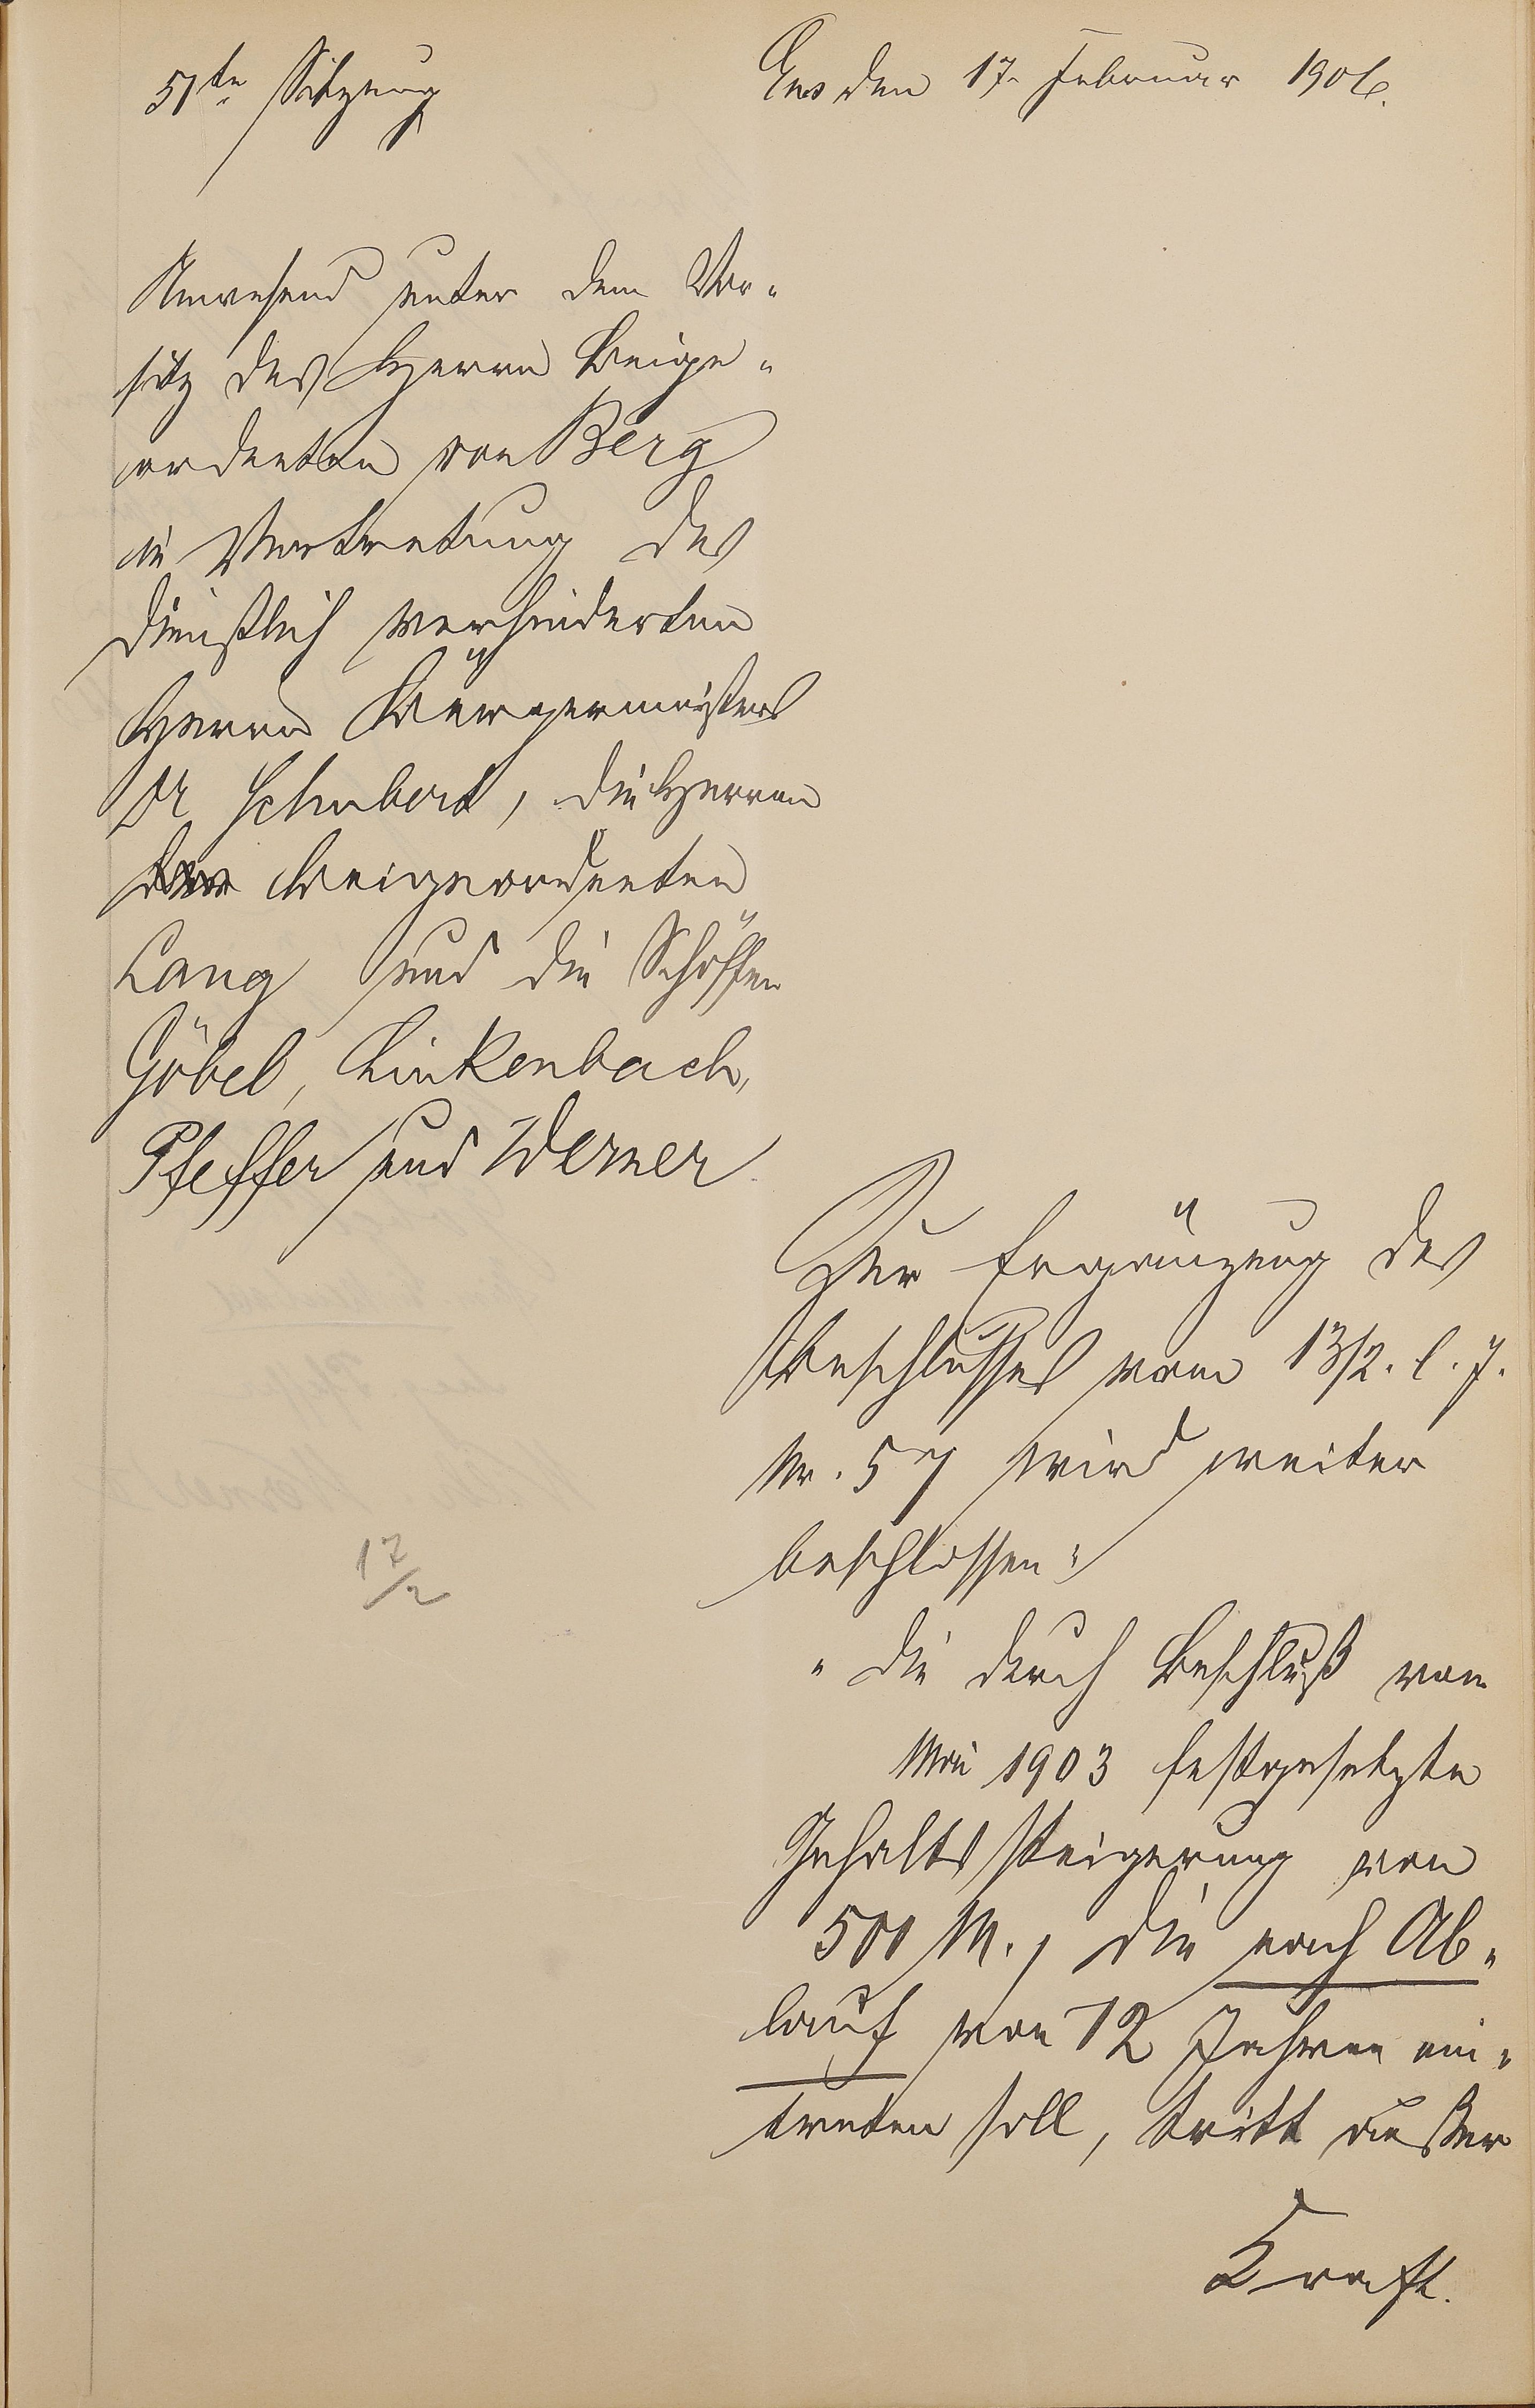 51te Sitzung
Ems den 17. Februar 1906.
Anwesend unter dem Vor-
sitz des Herrn Beige-
ordneten von Berg
in Vertretung des
dienstlich verhinderten
Herrn Bürgermeisters
Dr Schubert, die Herren
Beigeordneten
Lang und die Schöffen
Göbel, Linkenbach,
Pfeffer und Werner.
Zur Ergänzung des
Beschlusses vom 13/2. l. J.
Nr. 57 wird weiter
beschlossen:
"Die durch Beschluß vom
Mai 1903 festgesetzte
Gehaltssteigerung von
500 M., die nach Ab-
lauf von 12 Jahren ein-
treten soll, tritt außer
Kraft.
17/2